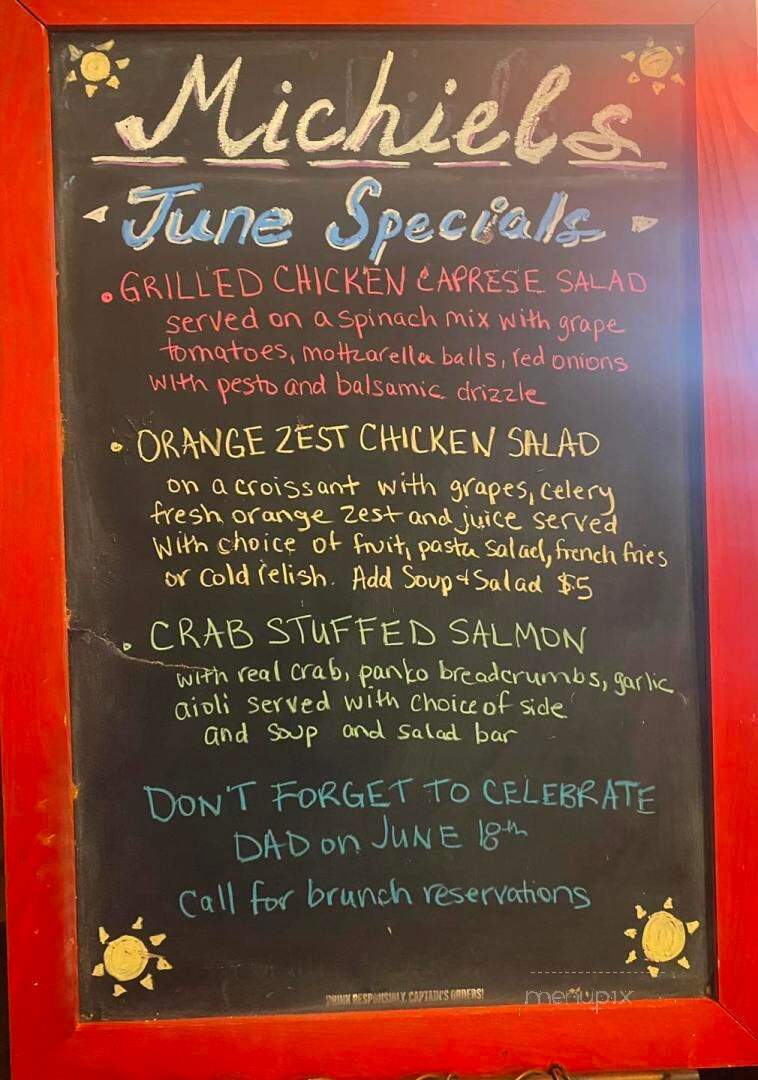 Michiels
June Specials
• GRILLED CHICKEN CAPRESE SALAD
served on a spinach mix with grape
tomatoes, mottzarella balls, red onions
with pesto and balsamic drizzle
• ORANGE ZEST CHICKEN SALAD
on a croissant with grapes, celery
fresh orange zest and juice served
with choice of fruit, pasta salad, french fries
or cold relish. Add Soup & Salad $5
• CRAB STUFFED SALMON
with real crab, panko breadcrumbs, garlic
aioli served with choice of side
and soup and salad bar
DON'T FORGET TO CELEBRATE
DAD on JUNE 18th
call for brunch reservations
DRINK RESPONSIBLY. CAPTAIN'S ORDERS!
menupix